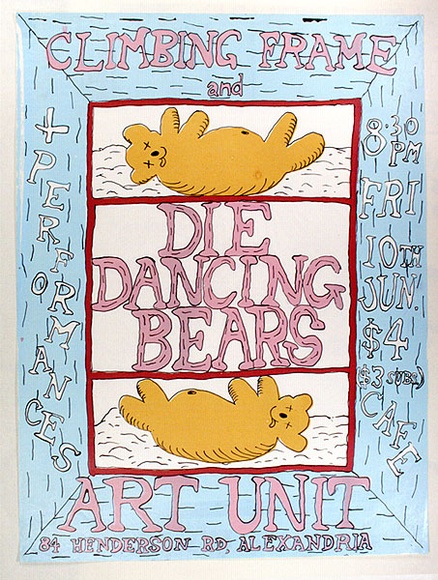 CLIMBING FRAME
and
+ PERFORMANCES
DIE
DANCING
BEARS
8:30
PM
FRI
10TH
JUN.
$4
($3 SUBS)
CAFE
ART UNIT
84 HENDERSON RD, ALEXANDRIA